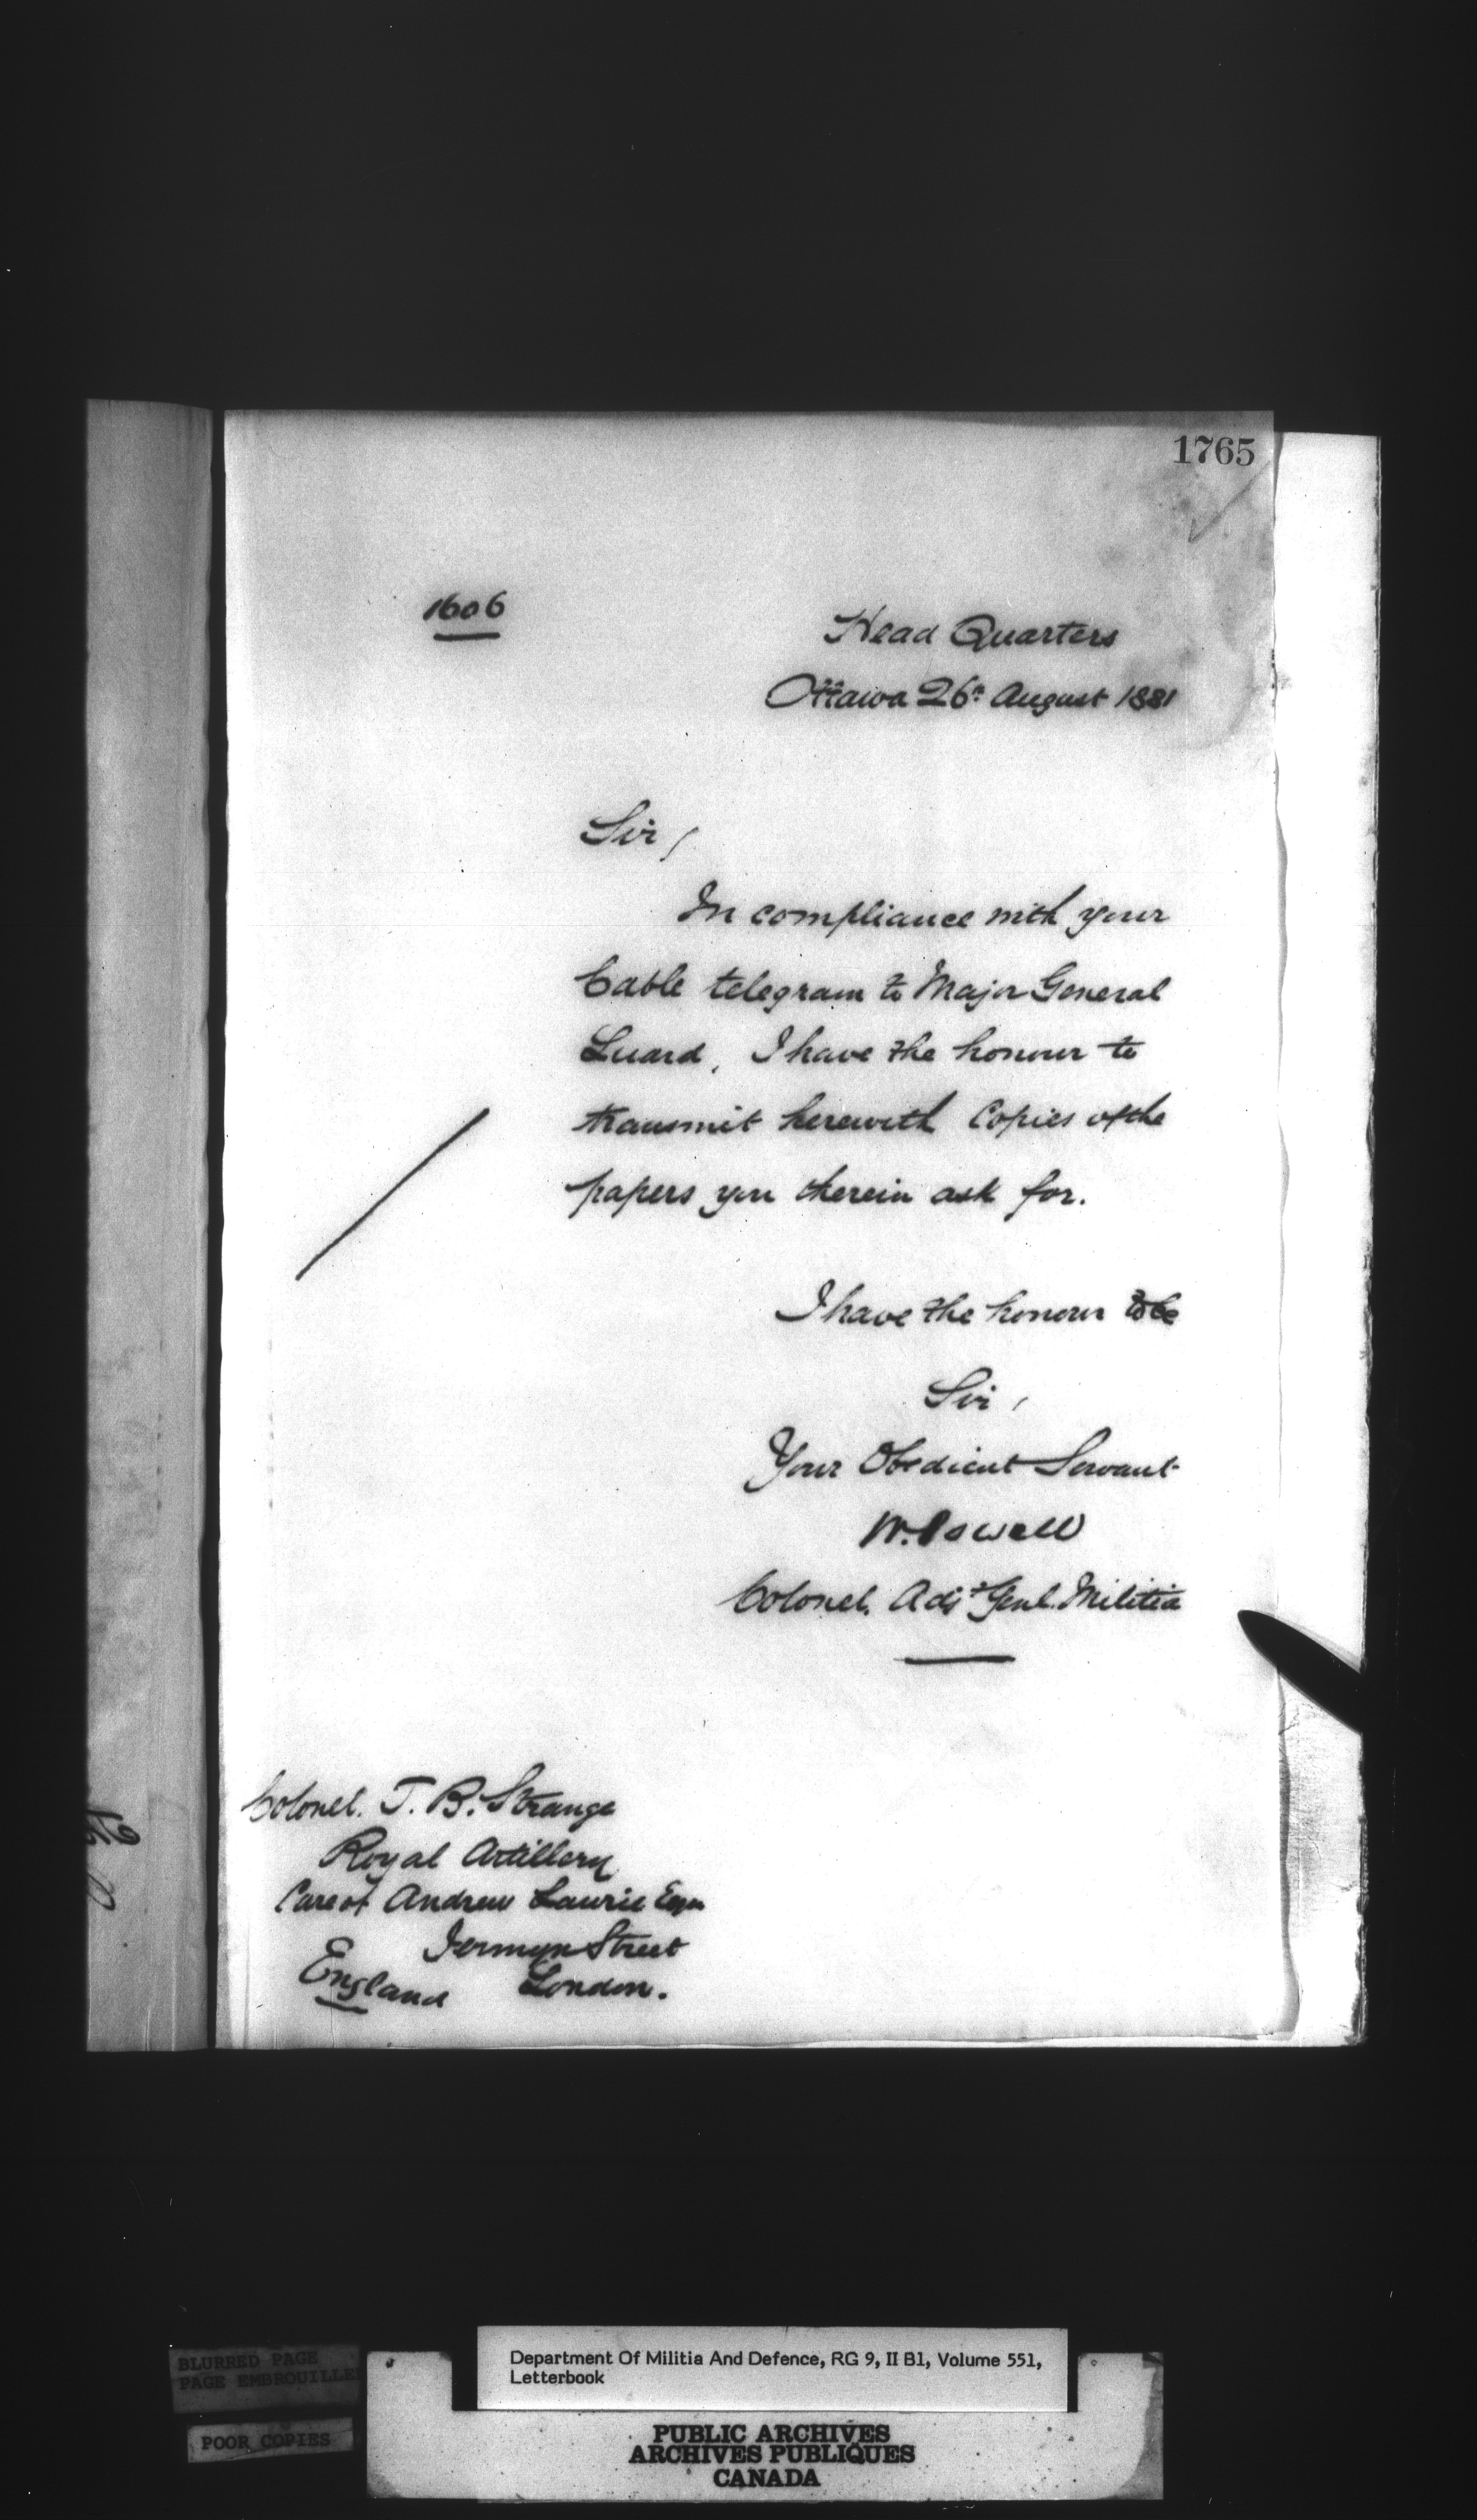 1765
1606
Head Quarters
Ottawa 26th August 1881
Sir,
In compliance with your
Cable telegram to Major General
Luard, I have the honour to
transmit herewith Copies of the
papers you therein ask for.
I have the honour to be
Sir,
Your Obedient Servant
W. Powell
Colonel. Adjt Genl. Militia
Colonel. T. B. Strange
Royal Artillery
Care of Andrew Laurie Esqr
Jermyn Street
England London.
BLURRED PAGE
PAGE EMBROUILLE
POOR COPIES
Department Of Militia And Defence, RG 9, II B1, Volume 551,
Letterbook
PUBLIC ARCHIVES
ARCHIVES PUBLIQUES
CANADA